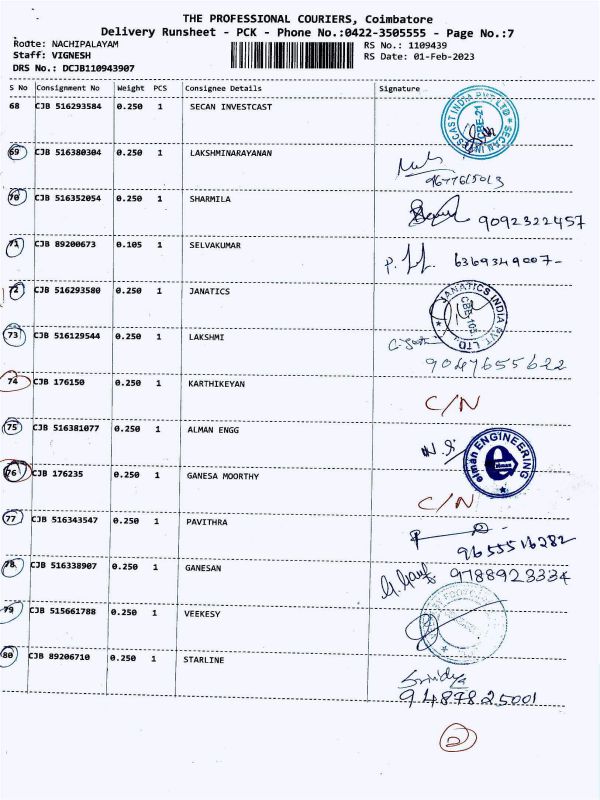 THE PROFESSIONAL COURIERS, Coimbatore
Delivery Runsheet - PCK - Phone No.:0422-3505555 - Page No.:7
Route: NACHIPALAYAM
RS No.: 1109439
Staff: VIGNESH
RS Date: 01-Feb-2023
DRS No.: DCJB110943907
S No Consignment No Weight PCS Consignee Details Signature
68 CJB 516293584 0.250 1 SECAN INVESTCAST
SECAN INVESCAST INDIA PVT LTD CBE-21
69 CJB 516380304 0.250 1 LAKSHMINARAYANAN
9677615013
70 CJB 516352054 0.250 1 SHARMILA
9092322457
71 CJB 89200673 0.105 1 SELVAKUMAR
6369349007-
72 CJB 516293580 0.250 1 JANATICS
JANATICS INDIA PVT. LTD.
73 CJB 516129544 0.250 1 LAKSHMI
9047655622
74 CJB 176150 0.250 1 KARTHIKEYAN
C/N
75 CJB 516381077 0.250 1 ALMAN ENGG
elman ENGINEERING
e
elman
76 CJB 176235 0.250 1 GANESA MOORTHY
C/N
77 CJB 516343547 0.250 1 PAVITHRA
9655516282
78 CJB 516338907 0.250 1 GANESAN
9788923334
79 CJB 515661788 0.250 1 VEEKESY
80 CJB 89206710 0.250 1 STARLINE
Srividya
9487825001
2